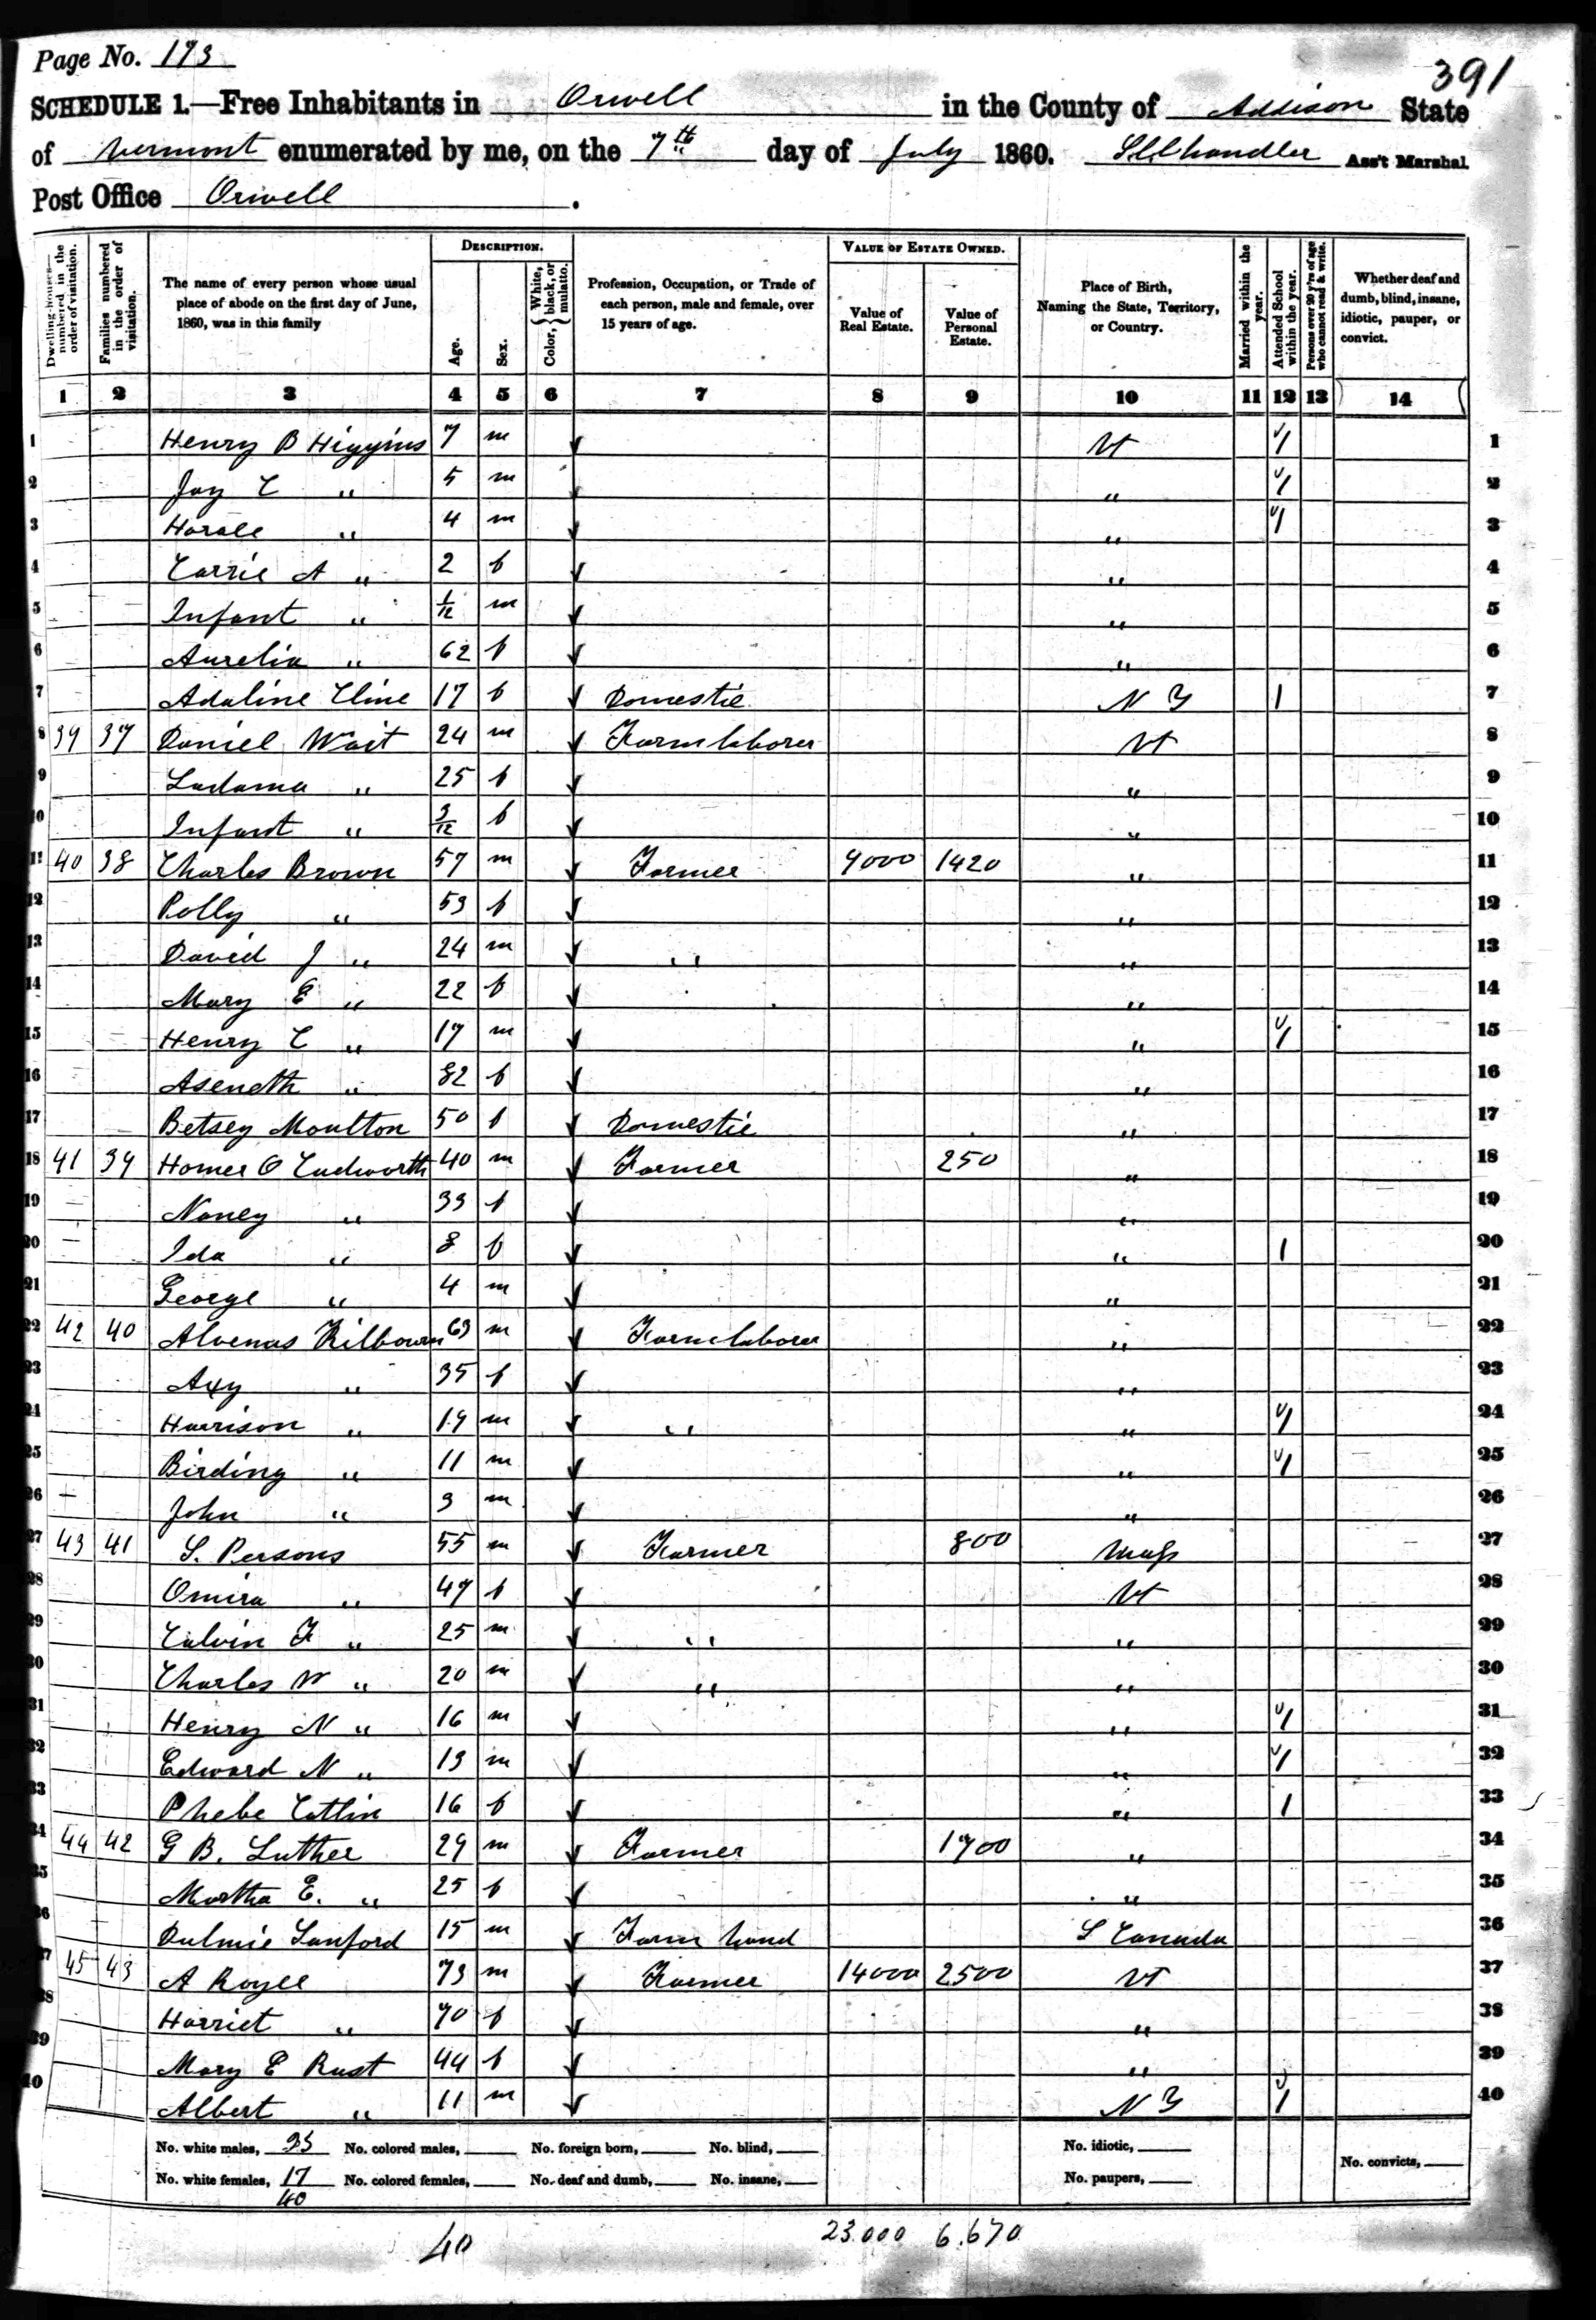 Page No. 173
391
SCHEDULE 1.—Free Inhabitants in Orwell in the County of Addison State
of Vermont enumerated by me, on the 7th day of July 1860. Chandler Ass't Marshal.
Post Office Orwell.
Dwelling-houses—numbered in the order of visitation.
Families numbered in the order of visitation.
The name of every person whose usual place of abode on the first day of June, 1860, was in this family
DESCRIPTION.
Age.
Sex.
Color, { White, black, or mulatto.
Profession, Occupation, or Trade of each person, male and female, over 15 years of age.
VALUE OF ESTATE OWNED.
Value of Real Estate.
Value of Personal Estate.
Place of Birth, Naming the State, Territory, or Country.
Married within the year.
Attended School within the year.
Persons over 20 y'rs of age who cannot read & write.
Whether deaf and dumb, blind, insane, idiotic, pauper, or convict.
1 2 3 4 5 6 7 8 9 10 11 12 13 14
1 Henry B Higgins 7 m Vt / 1
2 Jay C " 5 m " / 2
3 Horace " 4 m " / 3
4 Carrie A " 2 f " 4
5 Infant " 1/12 m " 5
6 Aurelia " 62 f " 6
7 Adaline Cline 17 f Domestic N Y 1 7
8 39 37 Daniel Wait 24 m Farm laborer Vt 8
9 Ladama " 25 f " 9
10 Infant " 3/12 f " 10
11 40 38 Charles Brown 57 m Farmer 9000 1420 " 11
12 Polly " 53 f " 12
13 David J " 24 m " " 13
14 Mary E " 22 f " 14
15 Henry C " 17 m " / 15
16 Aseneth " 82 f " 16
17 Betsey Moulton 50 f Domestic " 17
18 41 39 Homer O Cudworth 40 m Farmer 250 " 18
19 Nancy " 33 f " 19
20 Ida " 8 f " 1 20
21 George " 4 m " 21
22 42 40 Alvenas Kilbourn 63 m Farm laborer " 22
23 Axy " 35 f " 23
24 Harrison " 19 m " " / 24
25 Birding " 11 m " / 25
26 John " 3 m " 26
27 43 41 S. Persons 55 m Farmer 800 Mass 27
28 Omira " 47 f Vt 28
29 Calvin F " 25 m " " 29
30 Charles W " 20 m " " 30
31 Henry N " 16 m " / 31
32 Edward N " 13 m " / 32
33 Phebe Catlin 16 f " 1 33
34 44 42 G B. Luther 29 m Farmer 1700 " 34
35 Martha E. " 25 f " 35
36 Sanford 15 m Farm hand Canada 36
37 45 43 A Royce 73 m Farmer 14000 2500 Vt 37
38 Harriet " 70 f " 38
39 Mary E Rust 44 f " 39
40 Albert " 11 m N Y / 40
No. white males, 23 No. colored males, No. foreign born, No. blind, No. idiotic,
No. white females, 17 No. colored females, No. deaf and dumb, No. insane, No. paupers, No. convicts,
40
40 23.000 6.670